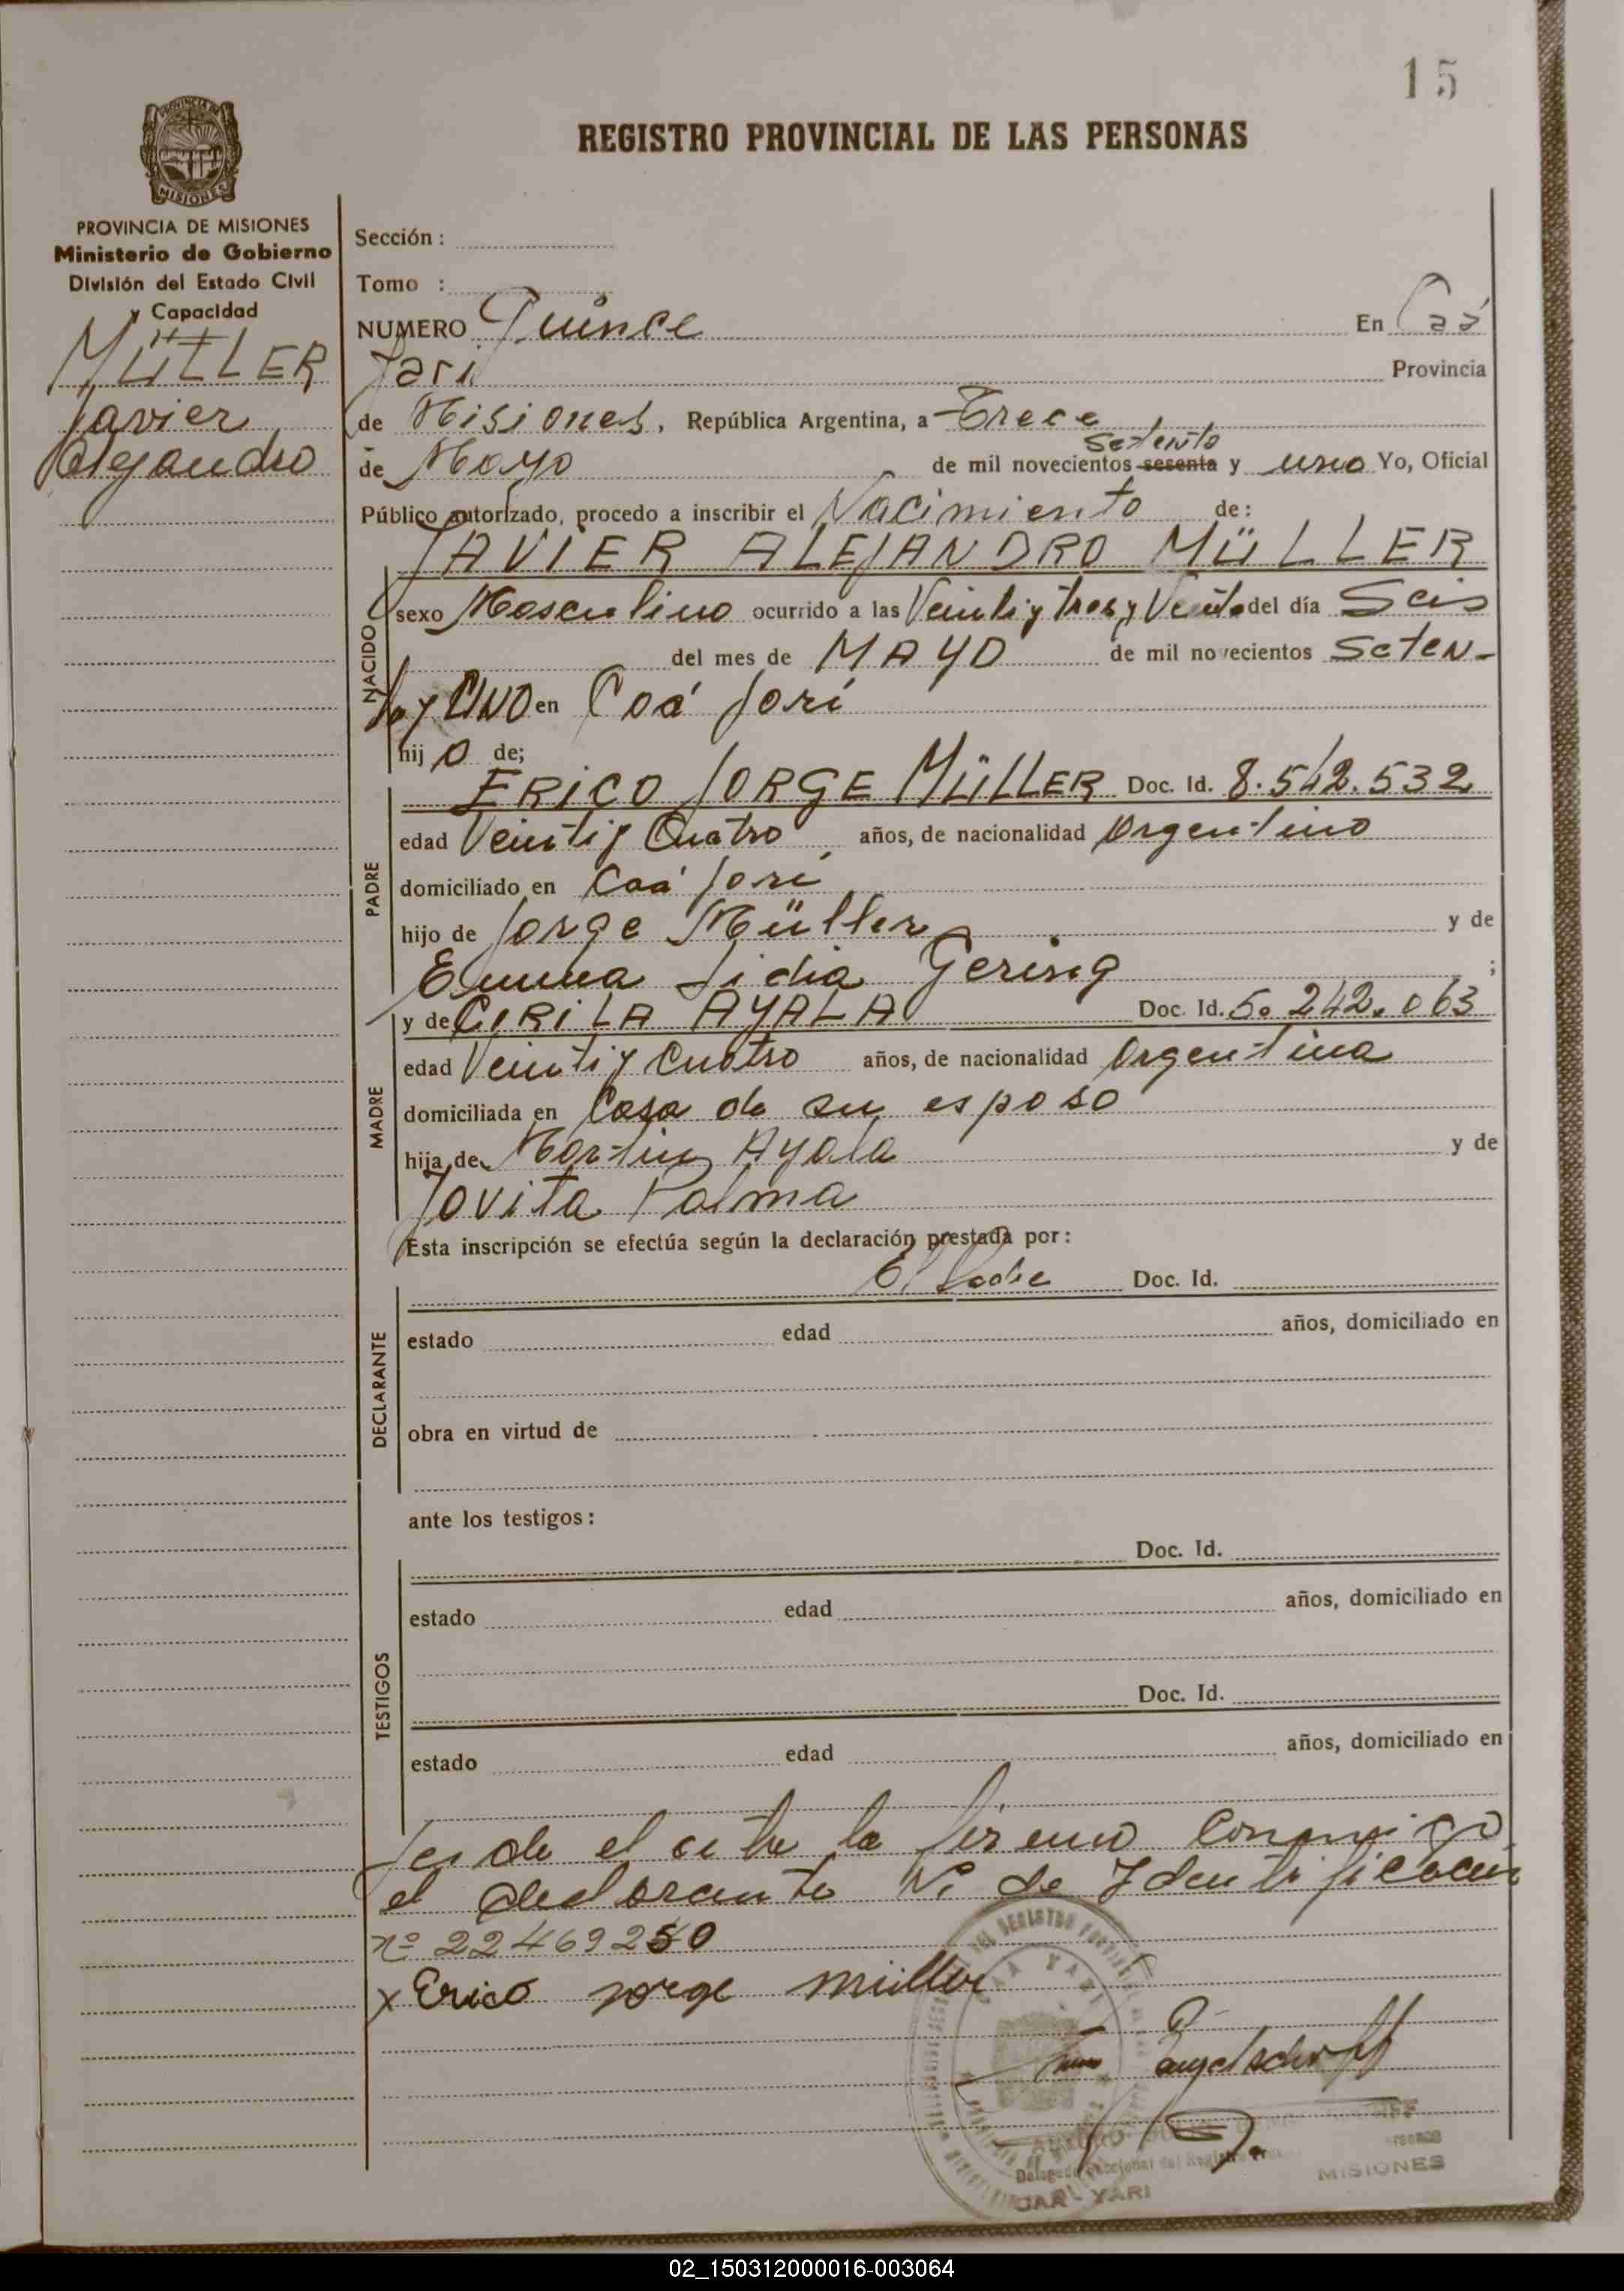 15
REGISTRO PROVINCIAL DE LAS PERSONAS
PROVINCIA DE MISIONES
PROVINCIA DE MISIONES
Ministerio de Gobierno
División del Estado Civil
y Capacidad
MÜLLER
Javier
Alejandro
Sección :
Tomo :
NUMERO Quince En Caá
Yarí Provincia
de Misiones, República Argentina, a Trece
setenta
de Mayo de mil novecientos sesenta y uno Yo, Oficial
Público autorizado, procedo a inscribir el Nacimiento de:
JAVIER ALEJANDRO MÜLLER
NACIDO
sexo Masculino ocurrido a las Veinti y tres y Veinte del día Seis
del mes de MAYO de mil novecientos Seten-
ta y UNO en Caá Yarí
hijo de;
PADRE
ERICO JORGE MÜLLER Doc. Id. 8.542.532
edad Veinti y Cuatro años, de nacionalidad Argentino
domiciliado en Caá Yarí
hijo de Jorge Müller y de
Emma Lidia Gering ;
MADRE
y de CIRILA AYALA Doc. Id. 5.242.063
edad Veinti y Cuatro años, de nacionalidad Argentina
domiciliada en Casa de su esposo
hija de Martin Ayala y de
Jovita Palma
Esta inscripción se efectúa según la declaración prestada por:
DECLARANTE
El Padre Doc. Id.
estado edad años, domiciliado en
obra en virtud de
ante los testigos:
TESTIGOS
Doc. Id.
estado edad años, domiciliado en
Doc. Id.
estado edad años, domiciliado en
el acta la firma conmigo
el declarante de Identificación
nº 22469250
x Erico Jorge müller
DEL REGISTRO
CAA YARI
Delegado Seccional del Registro
MISIONES
CAA - YARI
02_150312000016-003064